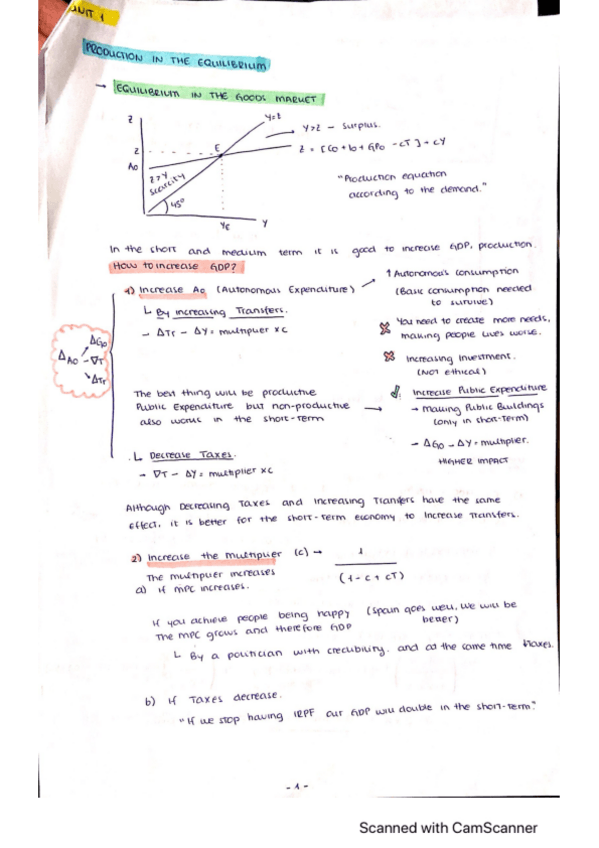 UNIT 1
PRODUCTION IN THE EQUILIBRIUM
→ EQUILIBRIUM IN THE GOODS MARKET
Z
Y=Z
Y>Z – Surplus.
Z
E
Z = [Co + b + GPo - cT] + cY
Ao
Z>Y
scarcity
45º
YE
Y
"Production equation
according to the demand."
In the short and medium term it is good to increase GDP, production.
How to increase GDP?
1) Increase Ao (Autonomous Expenditure)
↑ Autonomous consumption
(Basic consumption needed
to survive)
↳ By increasing Transfers.
– ΔTr – ΔY = multiplier × c
You need to create more needs,
making people lives worse.
Increasing Investment.
(Not ethical)
ΔAo
ΔGo
∇T
ΔTr
The best thing will be productive
Public Expenditure but non-productive
also works in the short-term
Increase Public Expenditure
→ Making Public Buildings
(only in short-term)
– ΔGo – ΔY = multiplier.
HIGHER IMPACT
↳ Decrease Taxes.
– ∇T – ΔY = multiplier × c
Although Decreasing Taxes and Increasing Transfers have the same
effect, it is better for the short-term economy to Increase Transfers.
2) Increase the multiplier (c) → 1
(1 - c + cT)
The multiplier increases
a) If MPC increases.
If you achieve people being happy (Spain goes well, we will be
better)
The MPC grows and therefore GDP
↳ By a politician with credibility. and at the same time
b) If Taxes decrease.
"If we stop having IRPF our GDP will double in the short-term."
- 1 -
Scanned with CamScanner